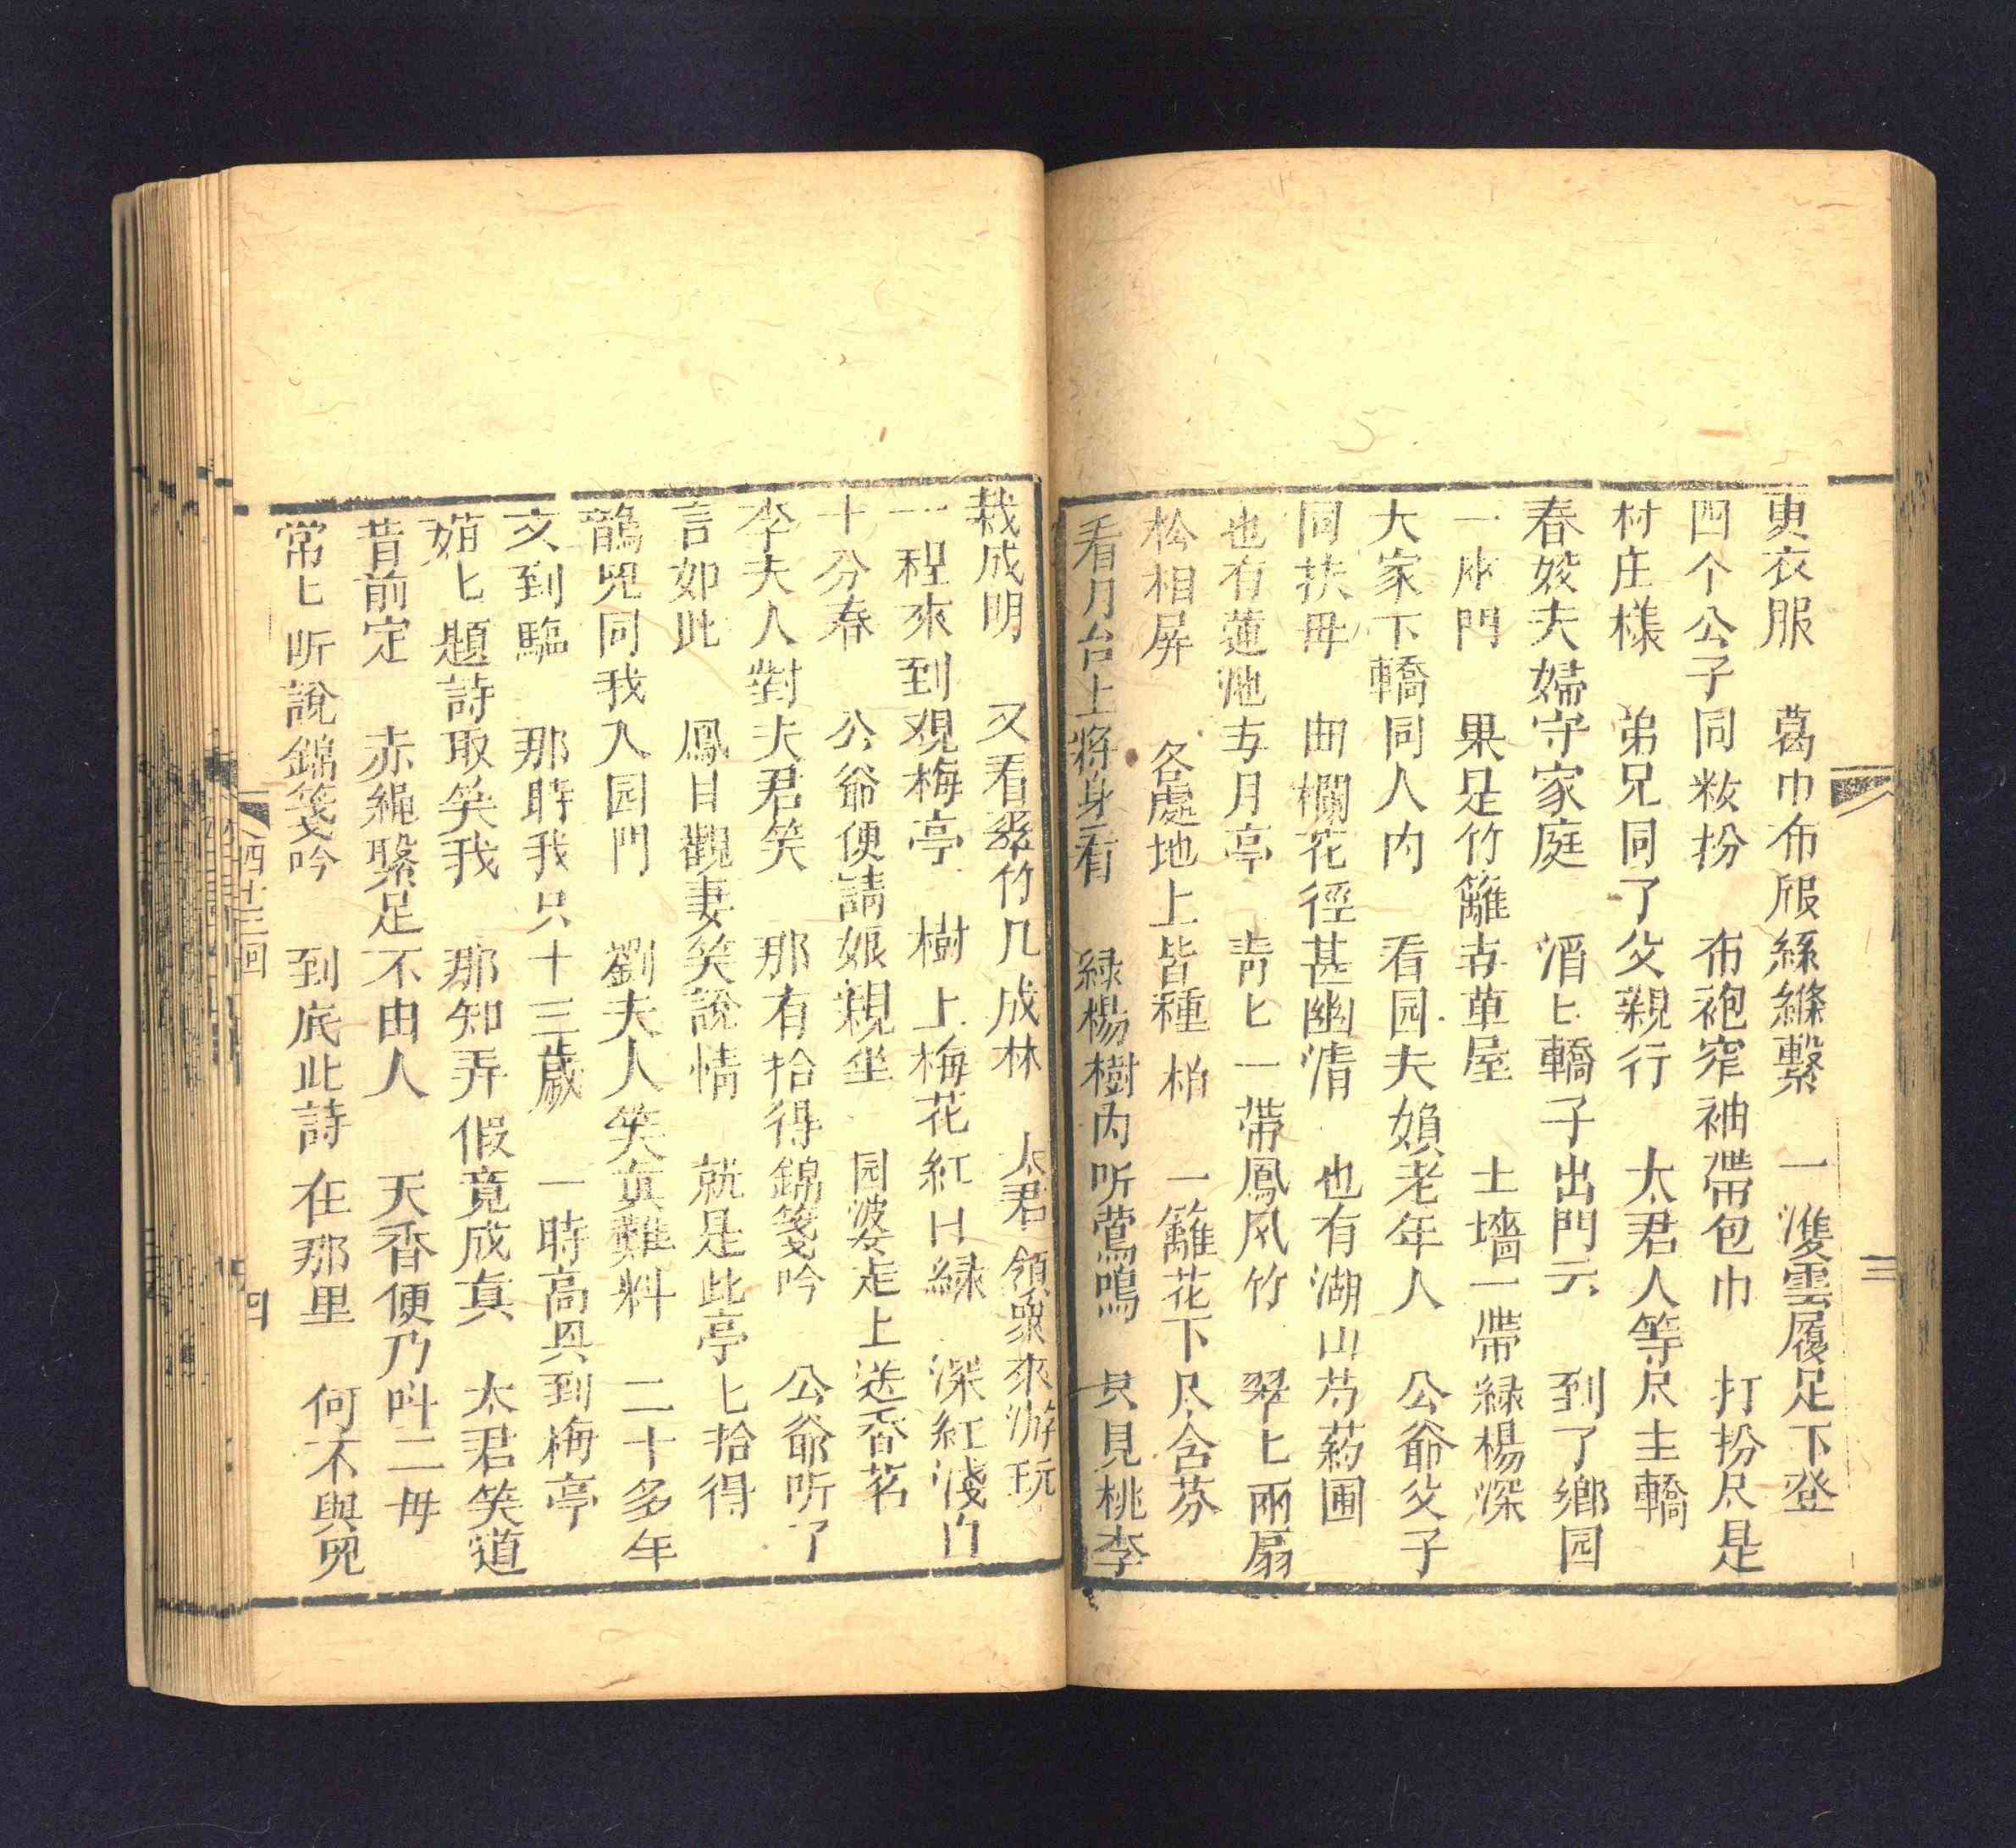 更衣服　葛巾布服絲縧繫　一雙雲履足下登
四个公子同粧扮　布袍窄袖帶包巾　打扮尽是
村庄樣　弟兄同了父親行　太君人等尽主轎
春姣夫婦守家庭　滔匕轎子出門去　到了鄉园
一座門　果是竹籬古草屋　土墻一帶緑楊深
大家下轎同人内　看园夫媍老年人　公爺父子
同扶毋　曲欄花徑甚幽清　也有湖山芍葯圃
也有蓮池与月亭　青匕一帶鳳风竹　翠匕兩扇
松相屏　各處地上皆種柏　一籬花下尽含芬
看月台上将身看　緑楊樹内听鶯鳴　只見桃李
三
栽成明　又看翠竹几成林　太君領衆來游玩
一程來到观梅亭　樹上梅花紅日緑　深紅淺白
十分春　公爺便請娘親坐　园婆走上送香茗
李夫人對夫君笑　那有拾得錦箋吟　公爺听了
言如此　鳳目觀妻笑說情　就是此亭匕拾得
鵲兒同我入园門　劉夫人笑真難料　二十多年
又到臨　那時我只十三歲　一時高興到梅亭
娋匕題詩取笑我　那知弄假竟成真　太君笑道
昔前定　赤繩繫足不由人　天香便乃呌二毋
常匕听說錦箋吟　到底此詩在那里　何不與兒
四廿三回
四